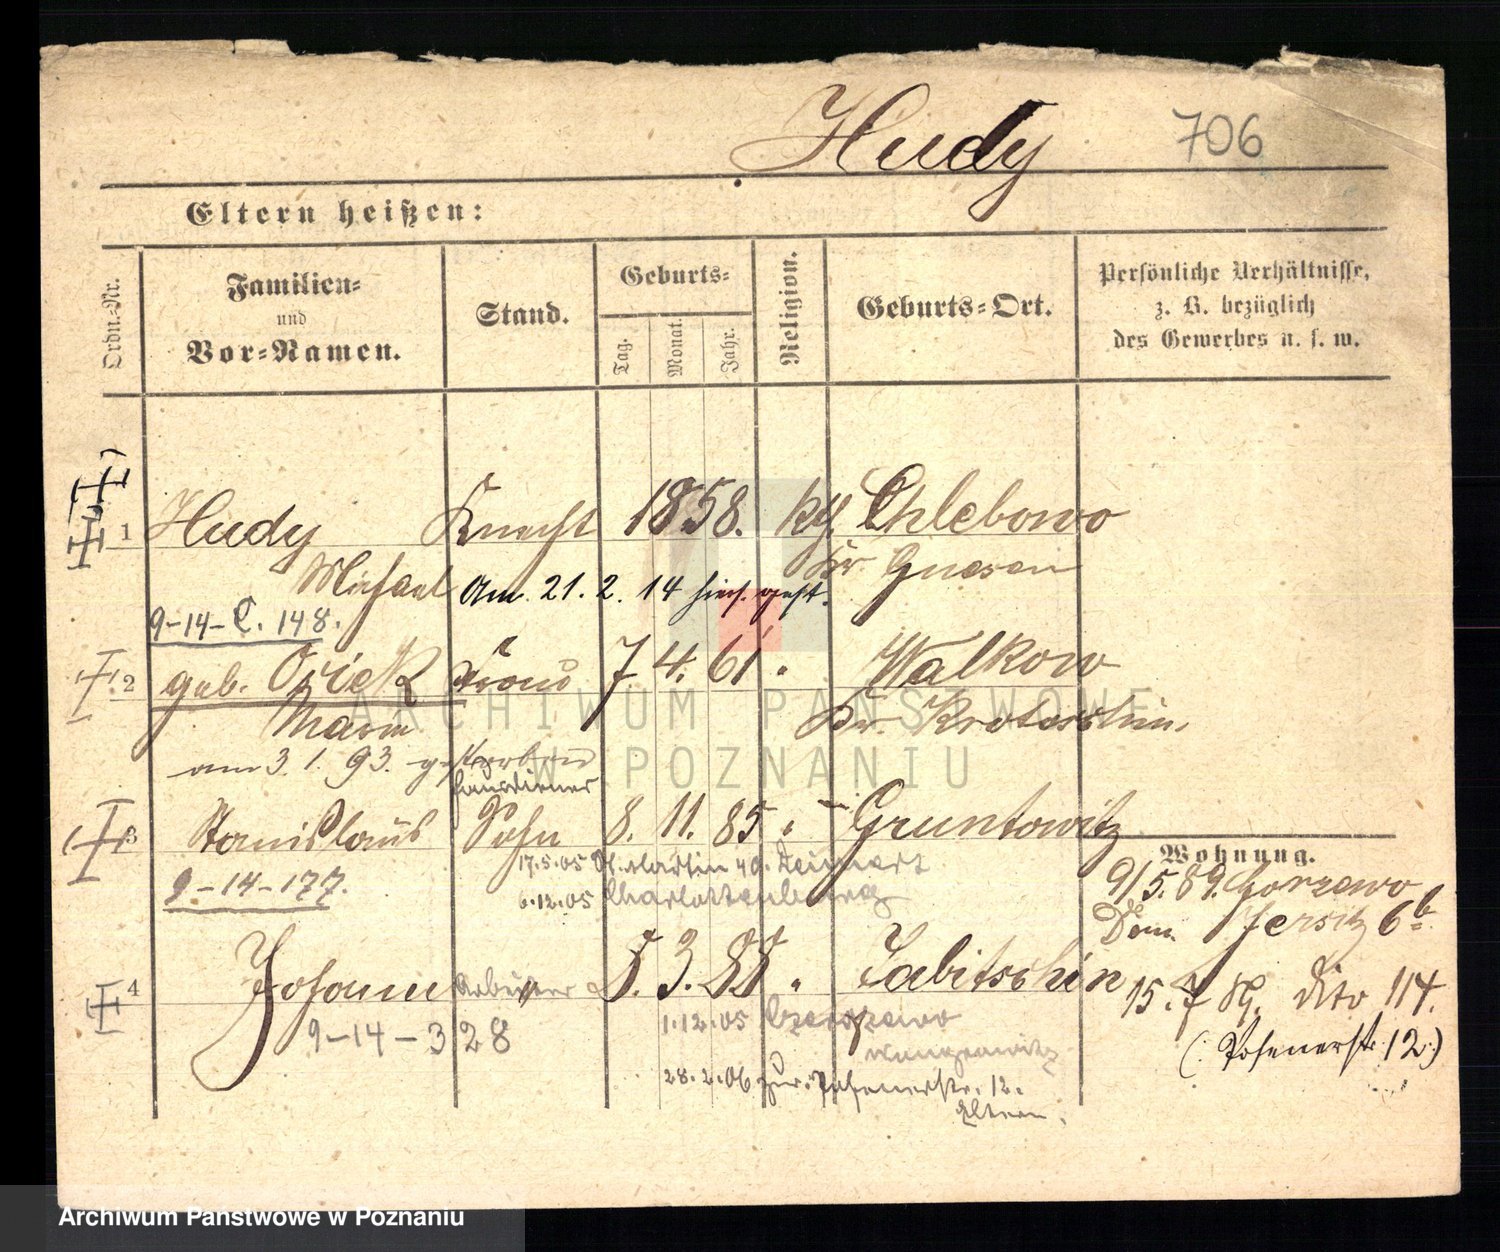 Hudy 706
Eltern heißen:
Ordn.-Nr.
Familien-
und
Vor-Namen.
Stand.
Geburts-
Tag.
Monat.
Jahr.
Religion.
Geburts-Ort.
Persönliche Verhältnisse,
z. B. bezüglich
des Gewerbes u. s. w.
1 Hudy Knecht 1858. kth. Chlebowo
Michael Kr Gnesen
Am 21. 2. 14 hier gest.
9-14-C. 148.
2 geb. Frau 7 4. 61 " Walkow
Maria Kr. Krotoschin.
am 3. 1. 93. gestorben
Hausdiener
3 Stanislaus Sohn 8. 11. 85 " Gruntowitz
17.5.05 St. Martin 40.
9-14-177.
6.12.05 Charlottenburg
4 Johann Arbeiter 8. 3. 88 " Jabitschin
9-14-328
1.12.05
Wongrowitz
28.2.06 zur. Posenerstr. 12.
Eltern.
Wohnung.
9/5. 89. Gorzewo
Dom. Jersitz 6b
15. 7 89. dito 114.
(: Posenerstr. 12:)
ARCHIWUM PAŃSTWOWE
W POZNANIU
Archiwum Państwowe w Poznaniu